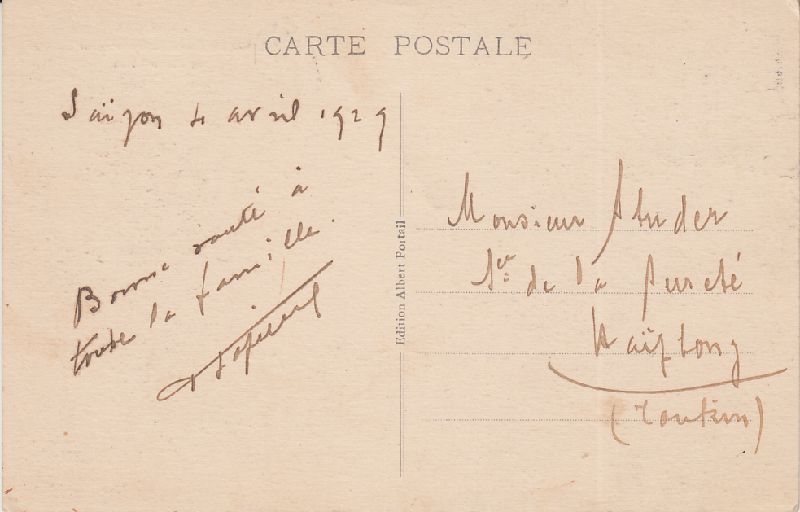 CARTE POSTALE
Saïgon 4 avril 1929
Bonne santé à
toute la famille.
Edition Albert Portail
Monsieur Studer
de la Sureté
Haïphong
(Tonkin)